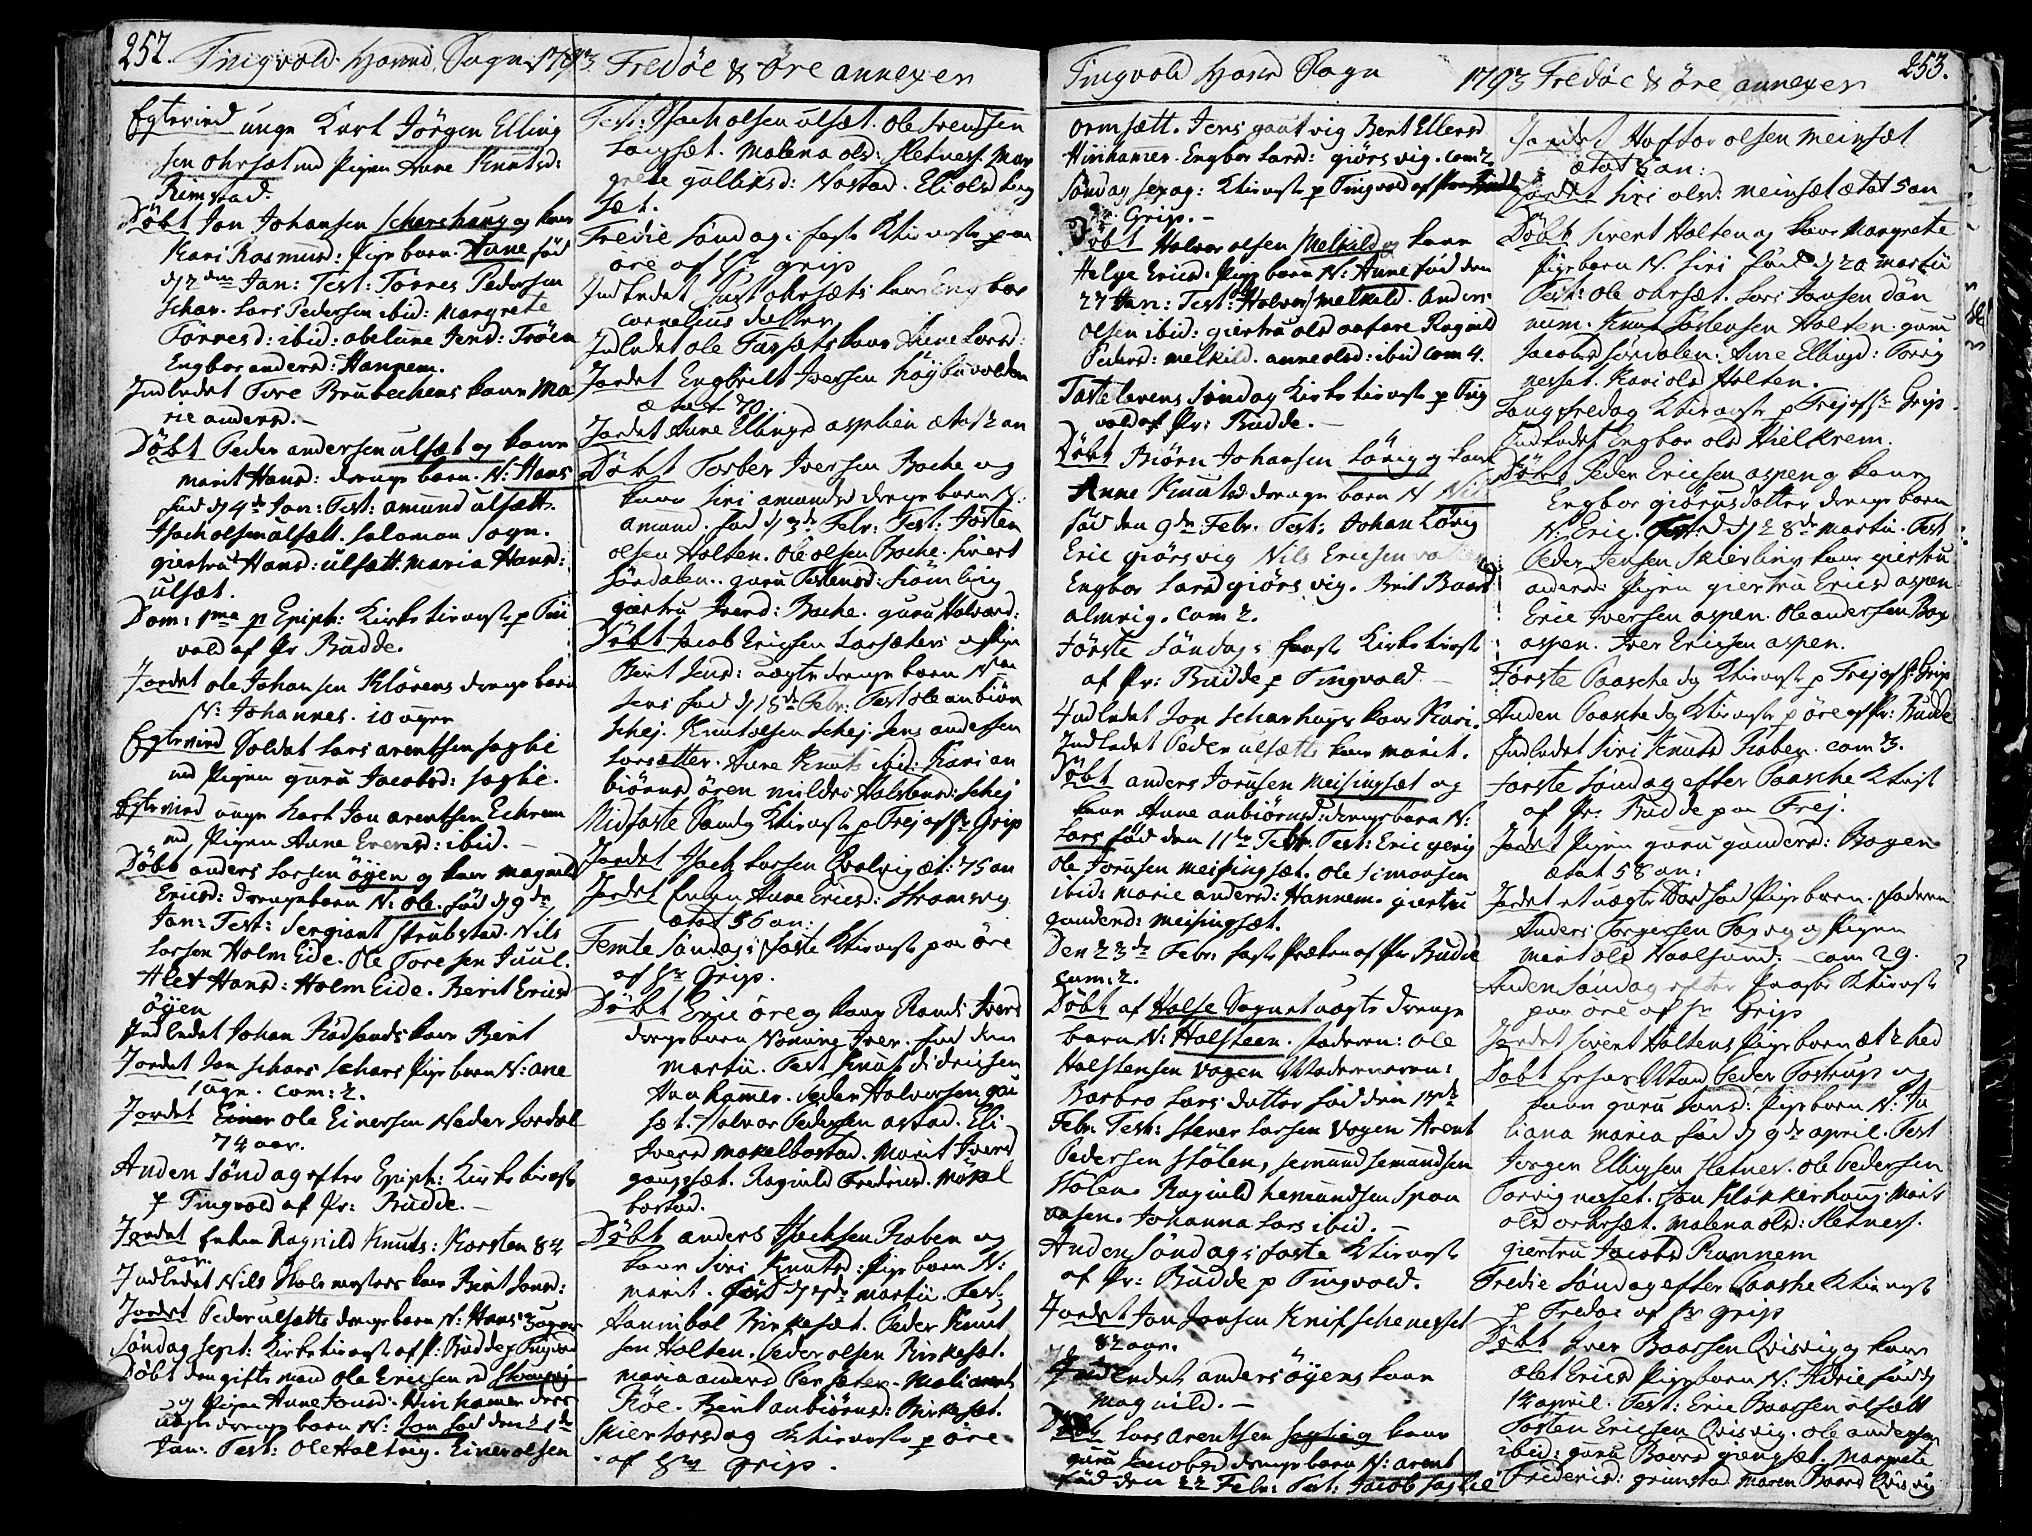 252. Tingvold Hoved Sogn 1793. Fredöe & Öre annexer
Egtevied unge Karl Jörgen Elling
sen ohrsæt med Pigen Anne Knutsd:
Rimstad.
Döbt Jon Johansen Scharshaug og kone
Kari Rasmusd: Pige barn. Anne föd
Jan: Test: Torres Pedersen
Schar. Lars Pedersen ibid: Margrete
Torresd: ibid: Jensd: Tröen
Engbor andersd: Hannem.
Indledet Tore Brubechens kone Ma
rie andersd. -
Döbt Peder andersen ulsæt og kone
marit Hansd: drenge barn. N: Hans
föd d 4de Jan: Test: amund ulsætt.
Isach olsen ulsætt. Salamon Sogn.
giertru Hansd: ulsætt. Maria Hansd:
ulsæt.
Dom: 1ma p Epiph: Kirke tieneste p Ting
vold af Pr Budde.
Jordet ole Johansen Klörens drenge barn
N: Johannes. 10 uger
Egtevied Soldat Lars arentsen Sogbie
med Pigen guru Jacobsd: Sogbie.
Egtevied unge Karl Jon arentsen Echrem
md Pigen Anne Erensd: ibid. -
Döbt anders Larsen öyen og kone magnild
Ericsd: drengebarn N: Ole. föd d 9de
Jan: Test: Sergiant Strubstad. Nils
Larsen Holm Eide. Ole Toresen Juul.
Alet Hansd: Holm Eide. Berit Ericsd
öyen
Indledet Johan Rödsands kone Berit
Jordet Jon Schars Schars Pige barn N: ane
1 uge. com: 2.
Jordet Einer ole Einersen Neder Jordal
74 aar.
Anden Söndag efter Epiph: Kirke tieneste
p Tingvold af Pr: Budde. -
Jordet Enken Ragnild Knuts: Korsten 84
aar.
Indledet Nils Skolemesters kone Berit Jonsd:
Jordet Peder ulsætts drenge barn N: Hans 3 uger
Söndag Sept: Kirke tieneste af Pr: Budde p Tingvold
Döbt den gifte mand Ole Ericsen
og Pigen Anne Jonsd: Hinhamer deres
uægte drenge barn N: Jon föd den 21de
Jan: Test: Ole Holtvig. Einer olsen
Test: Isach olsen ulsæt. Ole Svendsen
Langsæt. Malena olsd: Sletness. Mar
grete gulliksd: Nastad. Eli olsd Lang
sæt.
Tredie Söndag i faste Ktieneste paa
öre af Hr grip
Indledet Just ohrsæts kone Engbor
Cornelius datter
Indledet Ole Torsæts kone Anne Larsd:
Jordet Engbrilt Iversen Höybuvolden
ætat 70.
Jordet Anne Ellingsd asphien ætat 2 an
Döbt Torber Iversen Bache og
kone Siri amunds drenge barn N:
amund. föd d 3de Febr: Test: Josten
olsen Holten. Ole olsen Bache. Sivert
Sördalen. guru Torensd:
giertru Iversd: Bache. guru Halvarsd:
Döbt Jacob Ericsen Larsæter og Pige
Berit Jensd: uægte drenge barn N
Jens föd d 15de Febr: Test ole anbiörn
Schej. Knut olsen Schej. Jens andersen
Larsætter. Anne Knuts ibid: Kari an
biörnsd ören mildri Halstensd: Schej
Midfaste Söndag Ktieneste p Frej af Hr Grip
Jordet Isach Larsen Qvalvig æt: 75 an
Jordet Enken Anne Ericsd: Stromsvig
ætat 56 an:
Femte Söndag i faste Ktieneste paa öre
af Hr Grip.
Döbt Eric öre og kone Randi Iversd
drengebarn Navning Iver. föd den
Martii. Test Knut didricsen
Hanhamer. Peder Halversen gau
sæt. Halvor Pedersen astad. Eli
Iversd Mækelbostad. Marit Iversd
gaupset. Ragnild Fredricsd. Mækel
bostad.
Döbt anders Isachsen Raben og
kone Siri Knutsd: Pige barn N:
marit. föd d martii. Test
Hannibal Birkesæt. Peder Knut
sen Holten. Peder olsen Birkesæt.
maria andersd Persæter. Mali arents
Röe. Berit anbiörnsd: Birkesæt.
Skiertorsdag Ktieneste p öre
af Hr Grip.
Tingvold Hoved Sogn 1793 Fredöe & Öre annexer 253.
ormsætt. Jens gautvig Berit Ellensd
Hinhamer. Engbor Larsd: giörsvig. com 2.
Söndag sexag: Ktieneste p Tingvold af
Hr: Grip. -
Döbt Halvor olsen Melkild og kone
Helge Ericsd: Pige barn N: Anne föd den
27 Jan: Test: Halvor melkild. Anders
olsen ibid: giertru olsd Ragnild
Pedersd: Melkild. anne olsd: ibid com 4.
Fastelavens Söndag Kirke tieneste p Ting
vold af Pr: Budde. -
Döbt Biörn Johansen Lövig og kone
Anne Knutsd drenge barn N Nils
föd den 9de Febr. Test: Johan Lövig
Eric giörsvig Nils Ericsen
Engbor Larsd giörsvig. Berit Baards
almvig. com 2.
Förste Söndag i faste Kirke tieneste
af Pr: Budde p Tingvold. -
Indledet Jon Scharhaugs kone Kari.
Indledet Peder ulsætts kone marit.
Döbt anders Jörnsen Meisingsæt og
kone Anne anbiörnsd: drengebarn N:
Lars föd den 11te Febr. Test: Eric
Ole Jörnsen Meisingsæt. Ole Simonsen
ibid: Marie andersd: Hannem. giertru
gundersd: Meisingsæt.
Den 23de Febr: faste Præken af Pr Budde
com: 2.
Döbt af Halse Sognet uægte drenge
barn N: Halsteen. faderen: Ole
Halstensen Vogen Moderens navn:
Barbro Lars datter föd den 13de
Febr. Test: Stener Larsen Vogen Arent
Pedersen Stölen, Semund Semundsen
Stölen Ragnild hemundsen Span
aasen. Johanna Lars ibid. -
Anden Söndag i faste Ktieneste
af Pr: Budde p Tingvold.
Jordet Jon Jonsen Knifschenesset
82 aar.
Indledet anders öyens kone
Magnild. -
Döbt Lars Arentsen Sogbie og kone
guru Jacobsd drenge barn N: arent
föd den 22 Febr: Test: Jacob Sogbie
Jordet Hafter olsen meinsæt
ætat 8 an:
Jordet Siri olsd: meinsæt ætat 5 an
Döbt Sivert Holten og kone Margrete
Pigebarn N. Siri föd d 20 Martii
Test: Ole ohrsæt. Lars Jonsen Dön
num. Knut Jostensen Holten. guru
Jacobsd Sördalen. Anne Ellingsd: Torvig
nesset. Kari olsd Holten.
Langfredag Ktieneste p Frej af Hr Grip
Indledet Engbor olsd Hielkrem.
Döbt Peder Ericsen aspen og kone
Engbor giörensdatter drenge barn
N: Eric. föd d 28de Martii. Test
Peder Jensen Skierling kone giertru
andersd: Pigen giertru Ericsd aspen
Eric Iversen aspen. Ole andersen Bay
aspen. Iver Ericsen aspen.
Förste Paaschedag Ktieneste p Frej af Hr: Grip
Anden Paaschedag Ktieneste p öre af Pr: Budde
Indledet Siri Knutsd Raben. com 3.
Förste Söndag efter Paasche Ktienst
af Pr. Budde paa Frej.
Jordet Pigen guru gundersd: Bogen
ætat 58 an:
Jordet et uægte Dödföd Pigebarn. faderen
Anders Torgersen og Pigen
Marit olsd Naalsund. - com 29.
Anden Söndag efter Paasche Ktieneste
paa öre af Hr Grip
Jordet Sivert Holtens Pigebarn æt 2
Döbt Peder Tostrup og
kone guru Jonsd: Pigebarn N: Ju
liana Maria föd d 9de april. Test
Jörgen Ellingsen Sletnes. Ole Pedersen
Torvignesset. Jon Klokkerhaug. Marit
olsd orhsæt. Malena olsd: Sletness.
giertru Jacobsd Rannem
Tredie Söndag efter Paaske Ktienest
p Fredöe af Hr Grip
Döbt Iver Baarsen Qvisvig og kone
Olet Ericsd Pige barn N: Adrie föd d
14 april. Test: Eric Baarsen ulsætt
Tosten Ericsen Qvisvig. Ole andersen
ibid: guru Baarsd giengsæt. Margrete
Fridericsd: grimstad Maren Baarsd Qvisvig